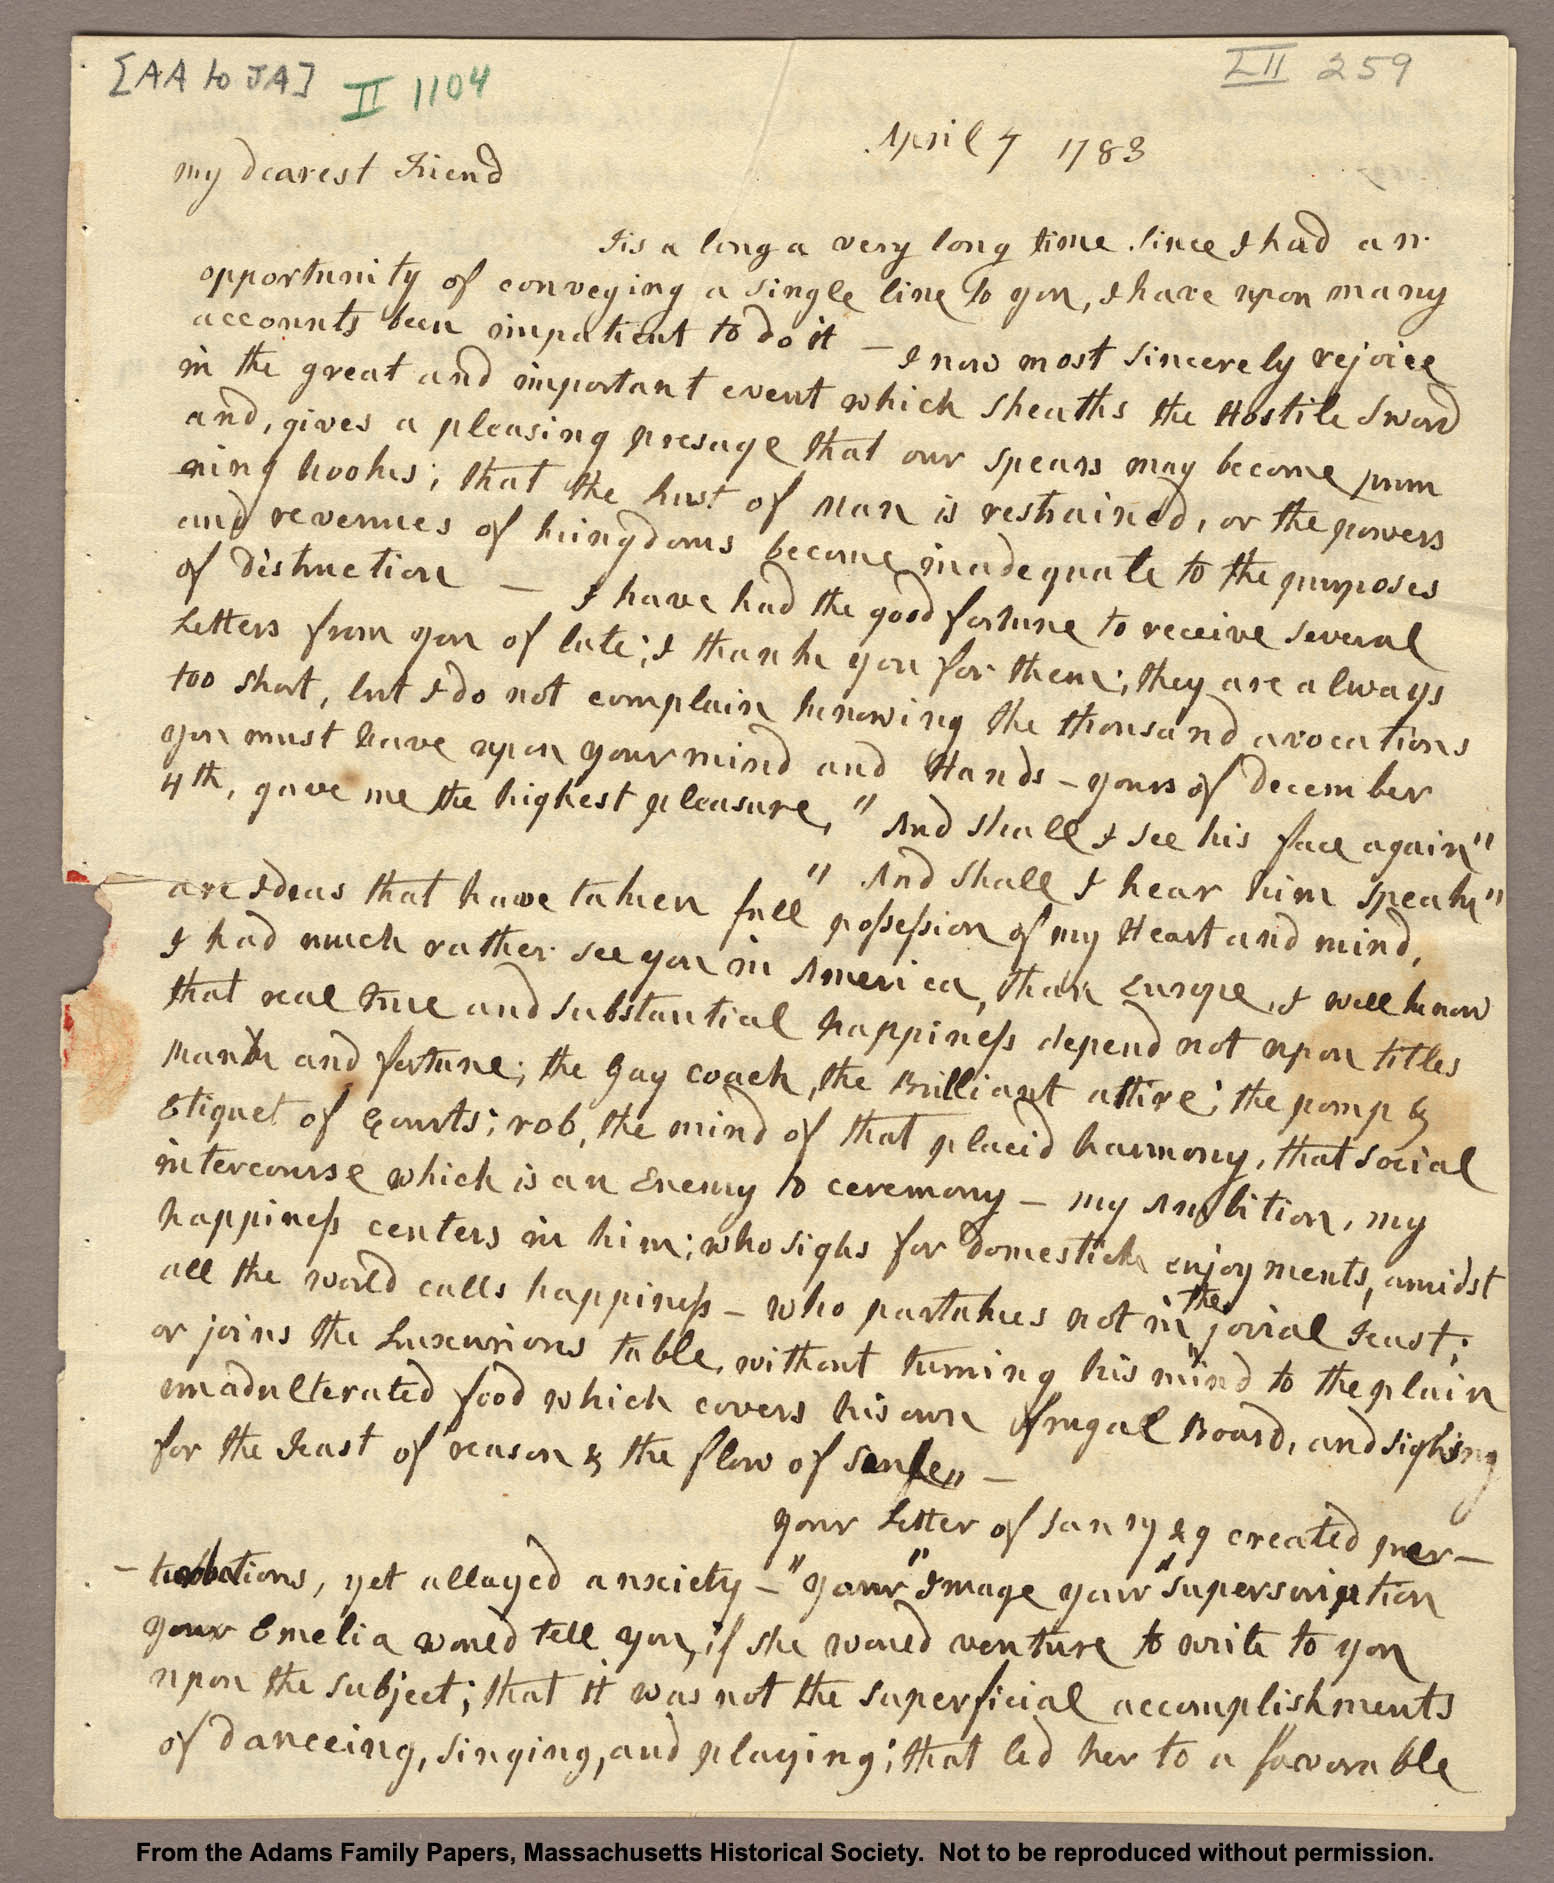 [AA to JA] II 1104
LII 259
April 7 1783
my dearest Friend
Tis a long a very long time since I had an
opportunity of conveying a single line to you, I have upon many
accounts been impatient to do it — I now most sincerely rejoice
in the great and important event which sheaths the Hostile Sword
and, gives a pleasing presage that our spears may become prun
ning hooks; that the lust of Man is restrained, or the powers
and revenues of kingdoms become inadequate to the purposes
of distruction — I have had the good fortune to receive several
Letters from you of late; I thank you for them; they are always
too short, but I do not complain knowing the thousand avocations
you must have upon your mind and Hands — yours of December
4th, gave me the highest pleasure, " And shall I see his face again"
" And shall I hear him speak"
are Ideas that have taken full possession of my Heart and mind,
I had much rather see you in America, than Europe, I well know
that real true and substantial happiness depend not upon titles
Rank and fortune; the Gay coach, the Brilliant attire; the pomp &
Etiquet of Courts; rob, the mind of that placid harmony, that social
intercourse which is an Enemy to ceremony — my Ambition, my
happiness centers in him; who sighs for domestick enjoyments, amidst
all the world calls happiness — who partakes not in the jovial Feast;
or joins the Luxurious table, without turning his mind to the plain
unadulterated food which covers his own frugal Board, and sighing
for the Feast of reason & the flow of Sense" —
your Letter of Janry 29 created per—
— turbations, yet allayed anxiety — "your" Image your "superscription
your Emelia would tell you, if she would venture to write to you
upon the subject; that it was not the superficial accomplishments
of danceing, singing, and playing; that led her to a favorable
From the Adams Family Papers, Massachusetts Historical Society. Not to be reproduced without permission.